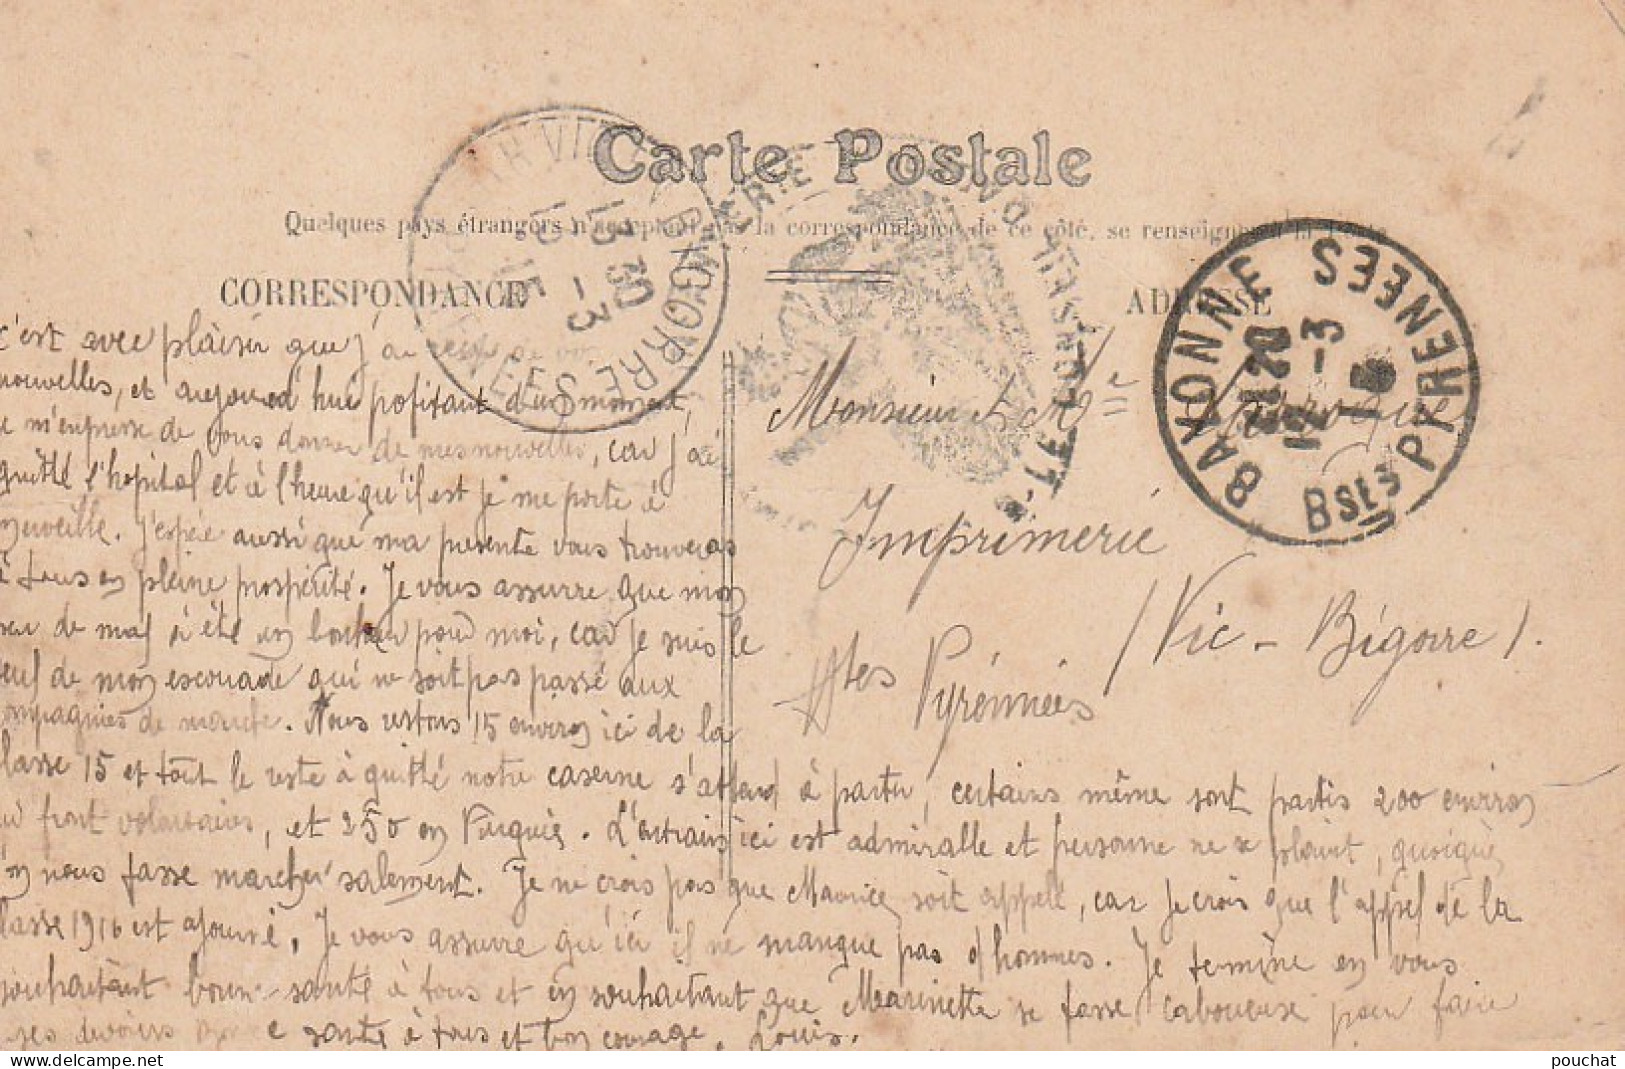 Carte Postale
Quelques pays étrangers n'acceptent pas la correspondance de ce côté, se renseigner à la Poste
CORRESPONDANCE
ADRESSE
BAYONNE Bses PYRENEES
-3
13 30
-3
15
BIGORRE
c'est avec plaisir que j'ai reçu de vos
nouvelles, et aujourd'hui pofitant d'un moment,
je m'empresse de vous donner de mes nouvelles, car j'ai
quitté l'hopital et à l'heure qu'il est je me porte à
merveille. J'espère aussi que ma présente vous trouveras
à tous en pleine prospérité. Je vous assure que mon
peu de mal à été un bonheur pour moi, car je suis le
seul de mon escouade qui ne soit pas passé aux
compagnies de marche. Nous restons 15 environ ici de la
classe 15 et tout le reste à quitté notre caserne s'attend à partir, certains même sont partis 200 environ
au front volontaires, et 250 en Turquie. L'entrain ici est admiralle et personne ne se plaint, quoique
l'on nous fasse marcher salement. Je ne crois pas que Maurice soit appelé, car je crois que l'appel de la
classe 1916 est ajourné, Je vous assure qu'ici il ne manque pas d'hommes. Je termine en vous
souhaitant bonne santé à tous et en souhaitant que Marinette se fasse caboueuse pour faire
ses devoirs santé à tous et bon courage. Louis.
Monsieur et Mme
Imprimerie
(Vic-Bigorre).
Htes Pyrénnées
pouchat